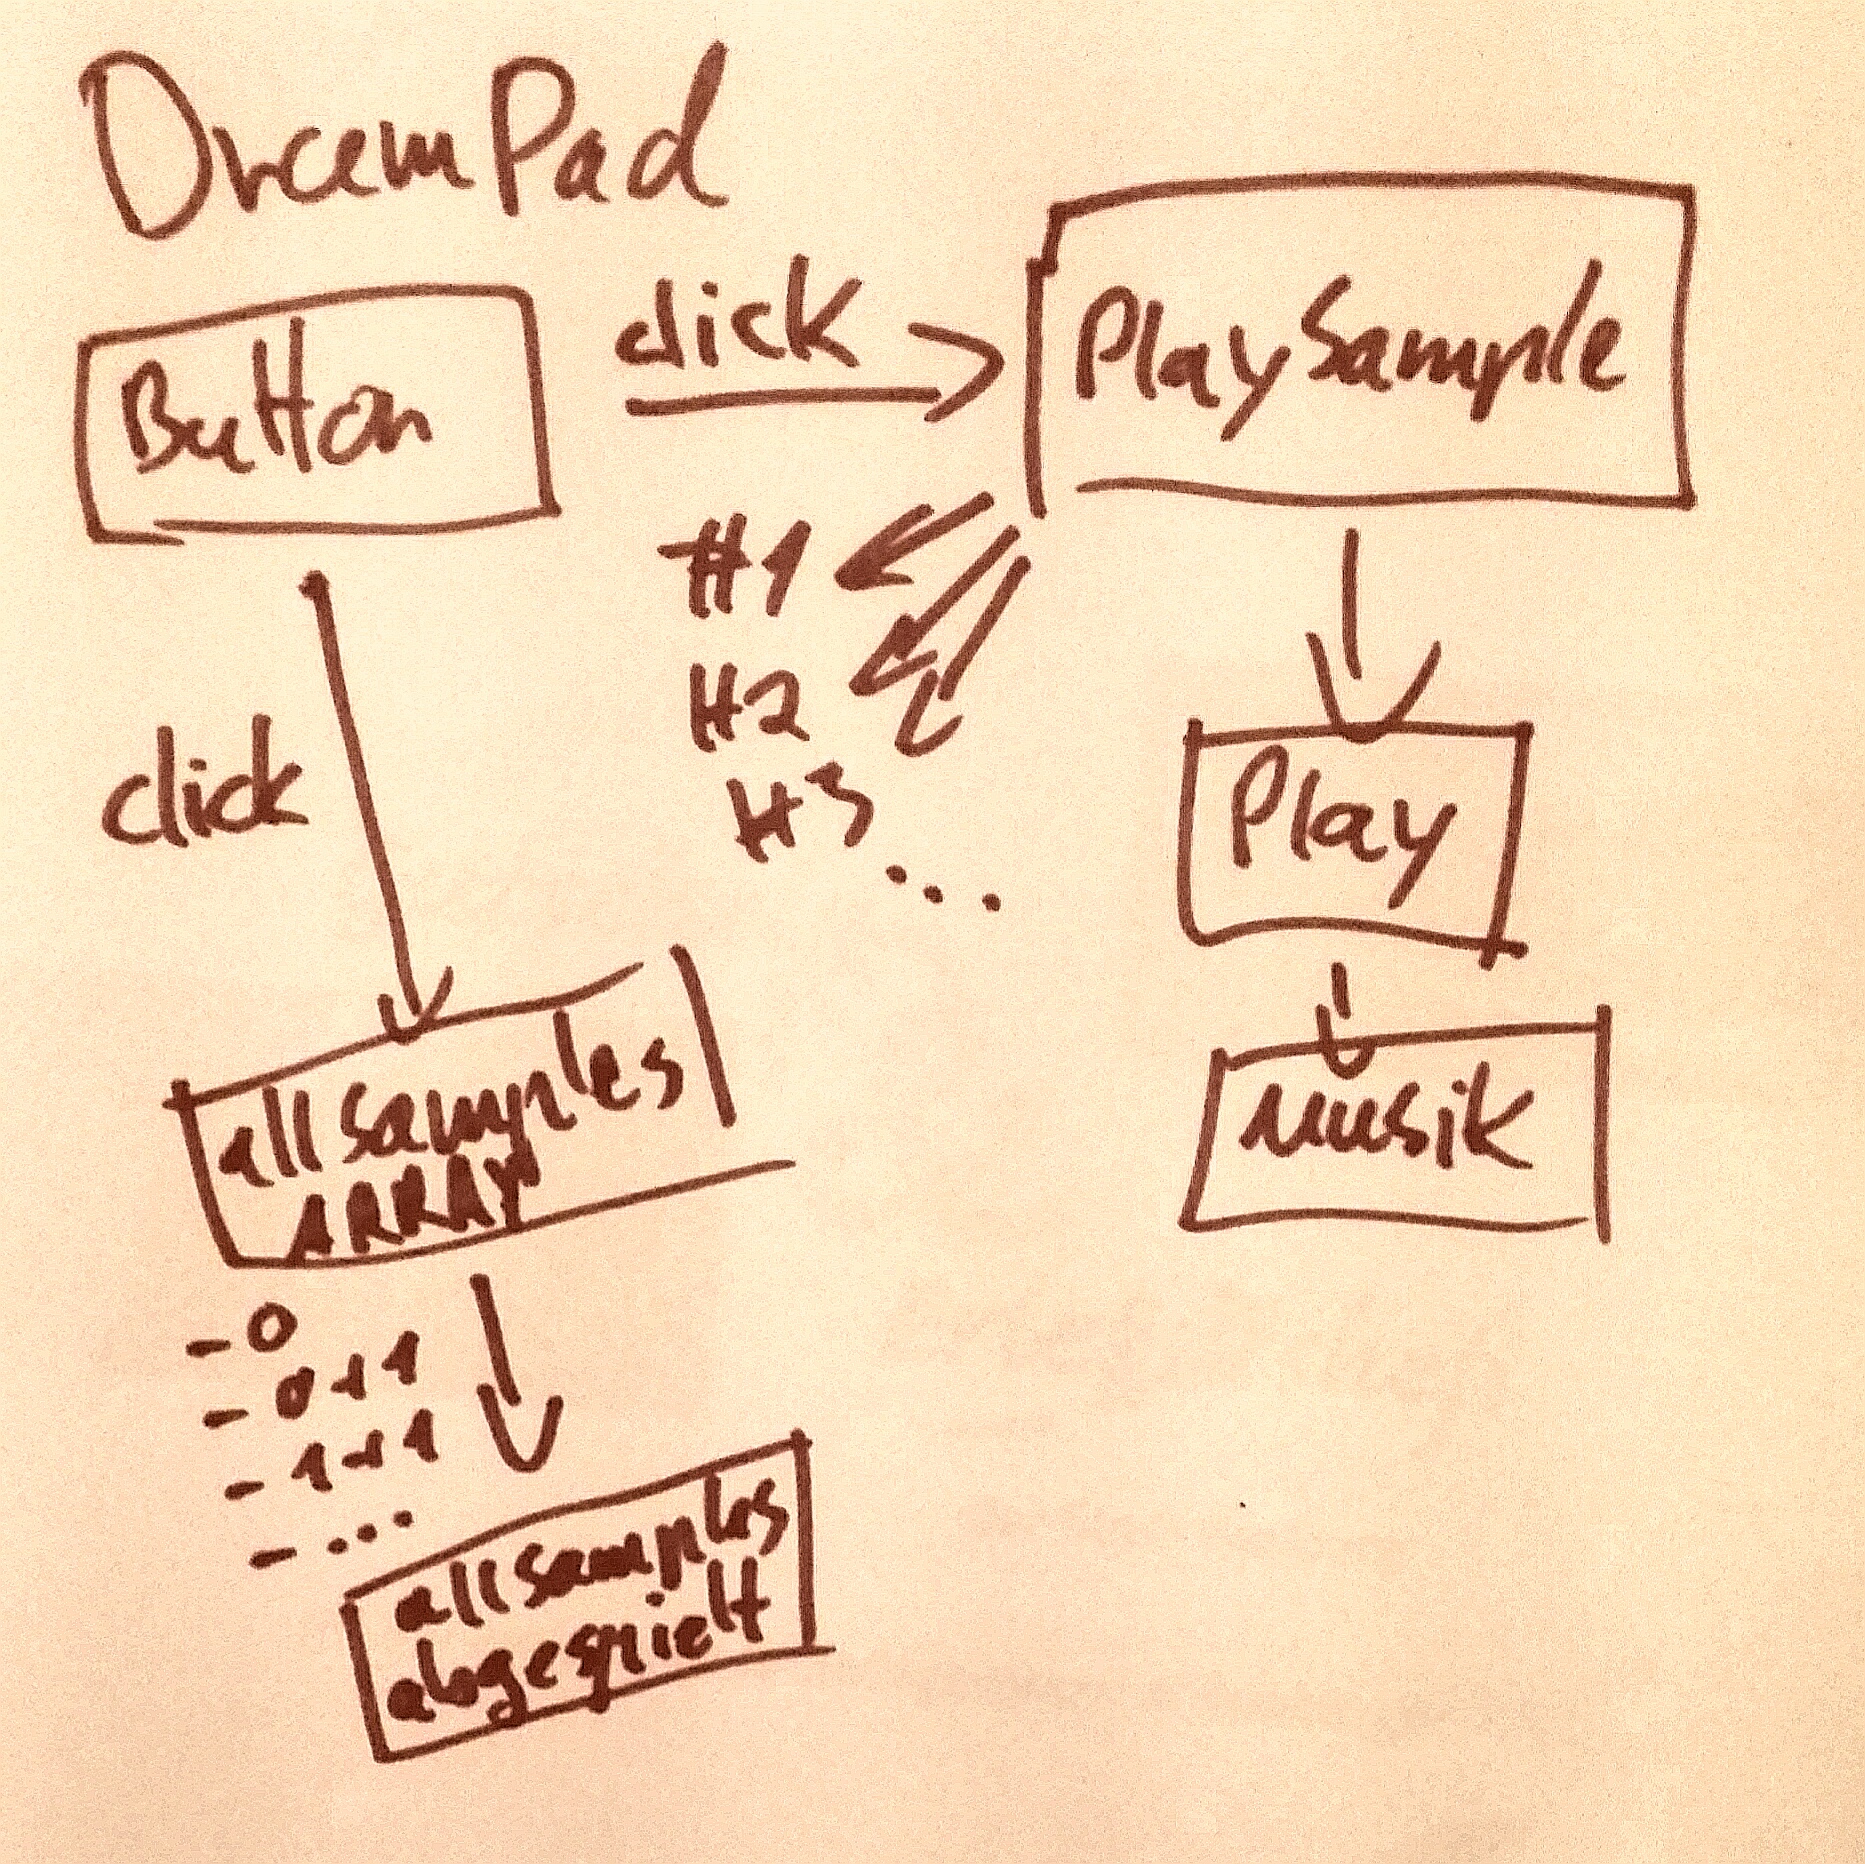 DrumPad
Button
click
PlaySample
#1
#2
#3
...
click
Play
Musik
allsamples
ARRAY
- 0
- 0+1
- 1+1
- ...
allsamples
abgespielt